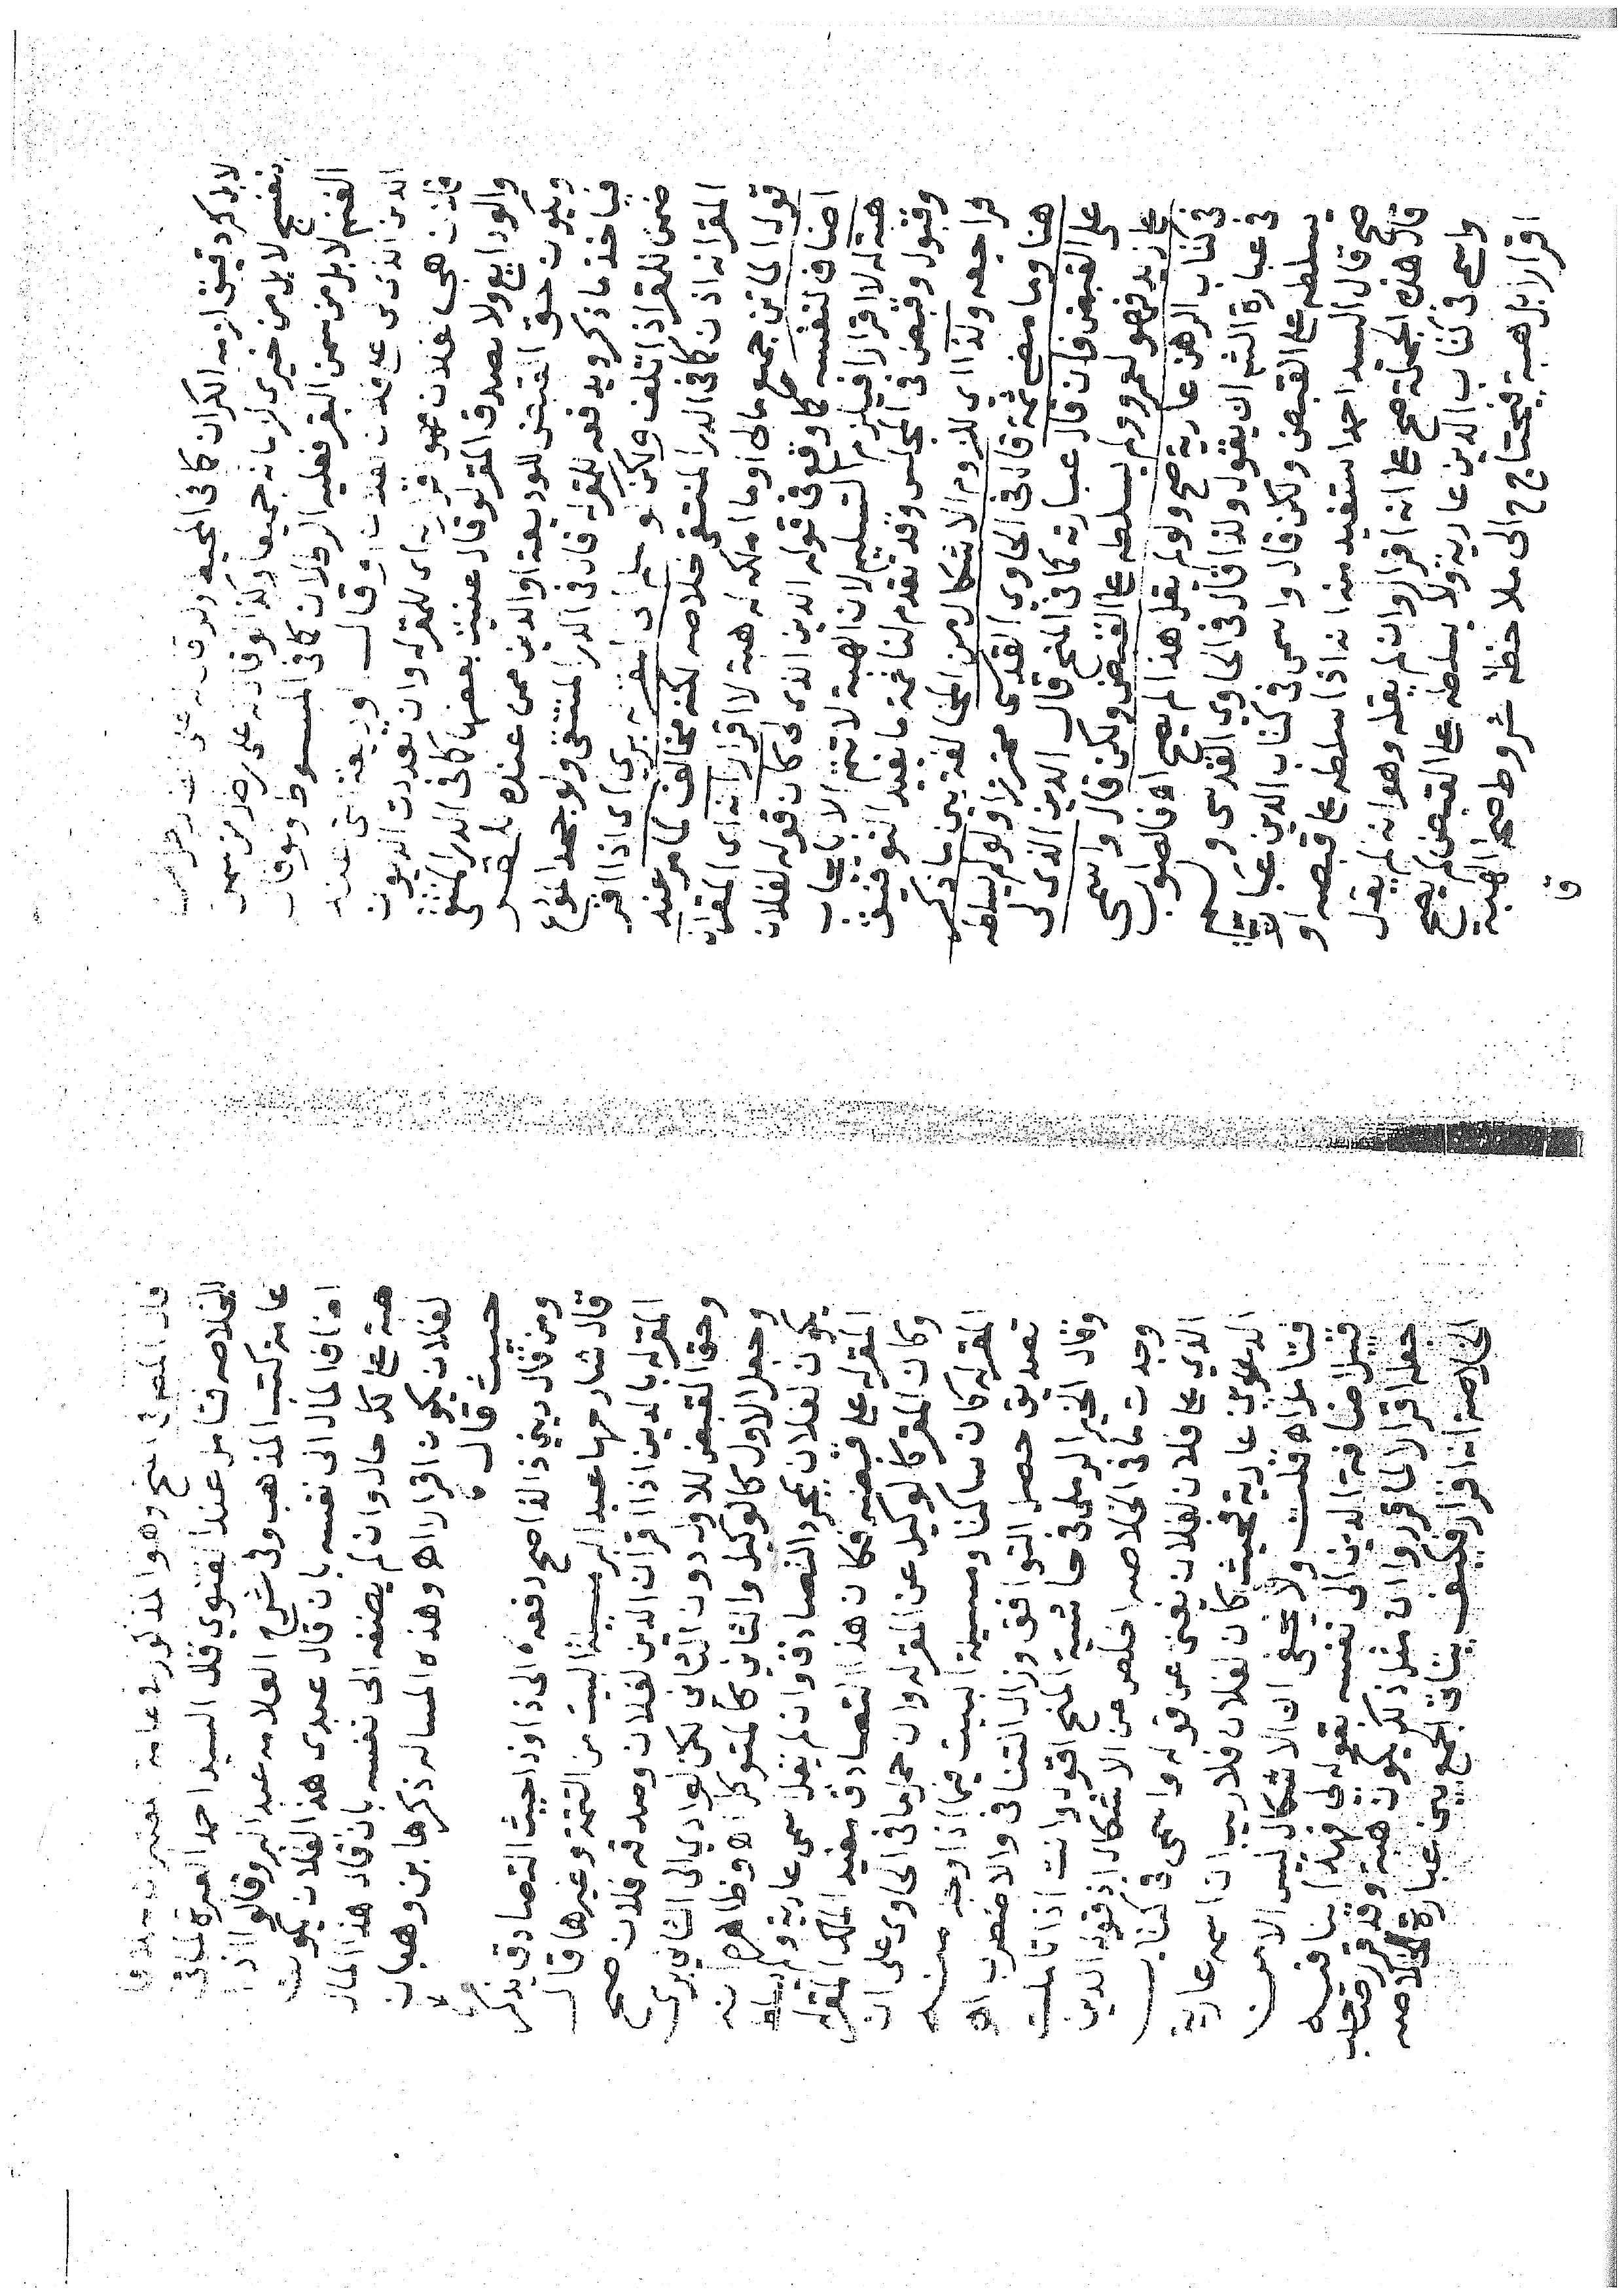 لابل كر دقيق لزمه الكران كافى المحيط ولو قال له على الف درهم
بنفسج لا بل من خيرى لزمانه جميعا وكذا لو قال له على رطل من سمن
الغنم لا بل من سمن البقر فعليه الرطلان كافى المبسوط ولو قال
الدين الذى لى على فلان لفلان او قال الوديعة التى عند
فلان هى لفلان فهو اقرار له اى للمقر له وان تعددت الديون
والودايع ولا يصدق المقر لو قال عنيت بعضها كافى الدر المنتقى
ويكون حق القبض للمودع او الدين ممن عنده للمقر
فياخذ ما ذكر ويدفعه للمقر له قال فى الدر المنتقى ولو جحد المودع
ضمن للمقر اذا تلف ولكن لو سلم الى المقر له برى اى اذا اقر
المقر انه اذن كافى الدر المنتقى خلاصه لكنه مخالف لما مر عند
قول الماتن جميع مالى او ما املكه له هبة لا اقرار انه اى المقر ان
اضاف لنفسه كما وقع فى قوله الدين الذى لى كان قوله لفلان
هبة له لا اقرارا فيلزم التسليم لان الهبة لا تتم الا بايجاب
وقبول وقبض فى المجلس وقد تقدم لنا ثمة ما يفيد التوفيق
فراجعه ولذا اى للزوم الاشكال من المخالفة بين ما ذكر
هنا وما مضى ثمة قال فى الحاوى القدسى محترزا ولو لم يسلطه
على القبض فان قال عبارته كافى المنح قال الدين الذى لى
على زيد فهو لعمرو ولم يسلطه على القبض ولكن قال واسمى
فى كتاب الرهن عارية صح ولو لم يقل هذا لم يصح اه فالصواب
فى عبارة الشه ان يقول ولذا قال فى الحاوى القدسى ولو
يسلطه على القبض ولكن قال واسمى فى كتاب الدين عارية
صح قال السيد احمد استفيد منه انه اذا سلطه على قبضه او
قال هذه الجملة صح على انه اقرار وان لم يقله وهو انه لم يقل
واسمى فى كتاب الدين عارية ولا يسلطه على القبض لم يصح
اقرارا بل هبة فيحتاج ح الى ملاحظة شروط صحة الهبة
قا
قال المصنف فى المنح وهو المذكور فى عامة
للخلاصه فتامل عند الفتوى قال السيد احمد العبرة لما فى
عامة كتب المذهب وفى شرح العلامه عبد البر وقالوا اذا
اضاف المال الى نفسه بان قال عبدى هذا لفلان يكون
هبة على كل حال وان لم يضفه الى نفسه بان قال هذا المال
لفلان يكون اقرارا اه وهذه المساله ذكرها ابن وهبان
حيث قال
ومن قال دينى ذا لذا صح دفعه الى ذا وذا حيث التصادق يذكر
قال شارحها عبد البر مسئلة البيت من التتمة وغيرها قال
المقر له بالدين اذا اقر ان الدين لفلان وصدقه فلان صح
وحق القبض للاول دون الثانى لكن لو ادى الى الثانى برى
وجعل الاول كالوكيل والثانى كالموكل اه وظاهره انه
يكون لفلان بمجرد التصادق وان لم يقل اسمى عارية ولم يسلط
المقر له على قبضه فكان هذا التصادق مفيد الملك المقر له
وكان المقر كالوكيل عن المقر له وان حمل ما فى الحاوى على ان
المقر له كان ساكتا ومسئلة البيت فيما اذا وجد منه
تصديق حصل التوافق وزال التنافى والاضطراب اه
وقال الخير الرملى فى حاشية المنح اقول وانت اذا تاملت
وجدت ما فى الخلاصه اخلص من الاشكال اذ قوله الدين
الذى على فلان لفلان يغنى عن قوله واسمى فى كتاب
الدين عارية فحيث كان لفلان فلا ريب ان اسمه عارية
فتامل اه قلت ولا يخفى ان الاشكال ليس الا من
قبل اضافة الدين الى نفسه بقوله لى فهذا ينافيه
جعله اقرارا لما قرر وان مثل ذلك يكون هبة وقد قرر صاحب
الخلاصة انه اقرار فكيف يتاتى الجمع بين عبارة الخلاصه